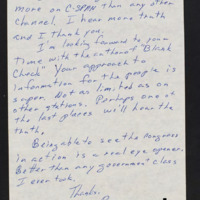 more on C-SPAN than any other
channel. I hear more truth
and I thank you.
I'm looking forward to your
time with the author of "Blank
Check". Your approach to
information for the people is
super. Not as limited as on
other stations. Perhaps one of
the last places we'll hear the
truth.
Being able to see the Congress
in action is a real eye opener.
Better than any government class
I ever took.
Thanks,